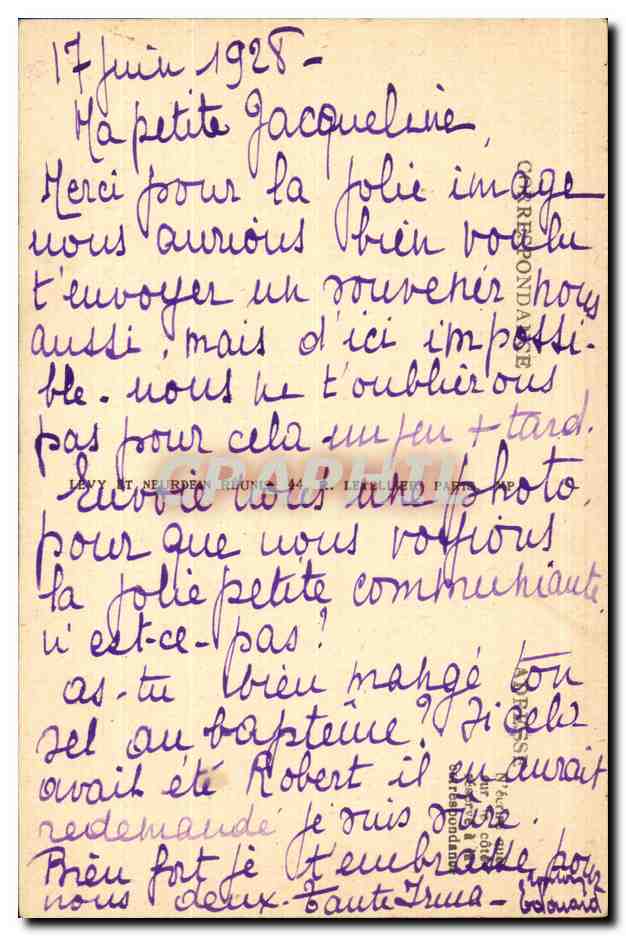 17 juin 1928 -
Ma petite Jacqueline,
Merci pour la jolie image
nous aurions bien voulu
t'envoyer un souvenir nous
aussi, mais d'ici impossi-
ble - nous ne t'oublierons
pas pour cela un peu + tard.
Envoie nous une photo,
pour que nous voyions
la jolie petite communiante
n'est-ce-pas?
as-tu bien mangé ton
sel au baptême? Si cela
avait été Robert il en aurait
redemandé je suis sûre.
Bien fort je t'embrasse pour
nous deux - Tante Irma -
Edouard
CORRESPONDANCE
LEVY ET NEURDEIN REUNIS 44, R. LETELLIER, PARIS IMP
CARAPHIL
ADRESSE
N'écrire que
sur le côté
réservé à la
correspondance